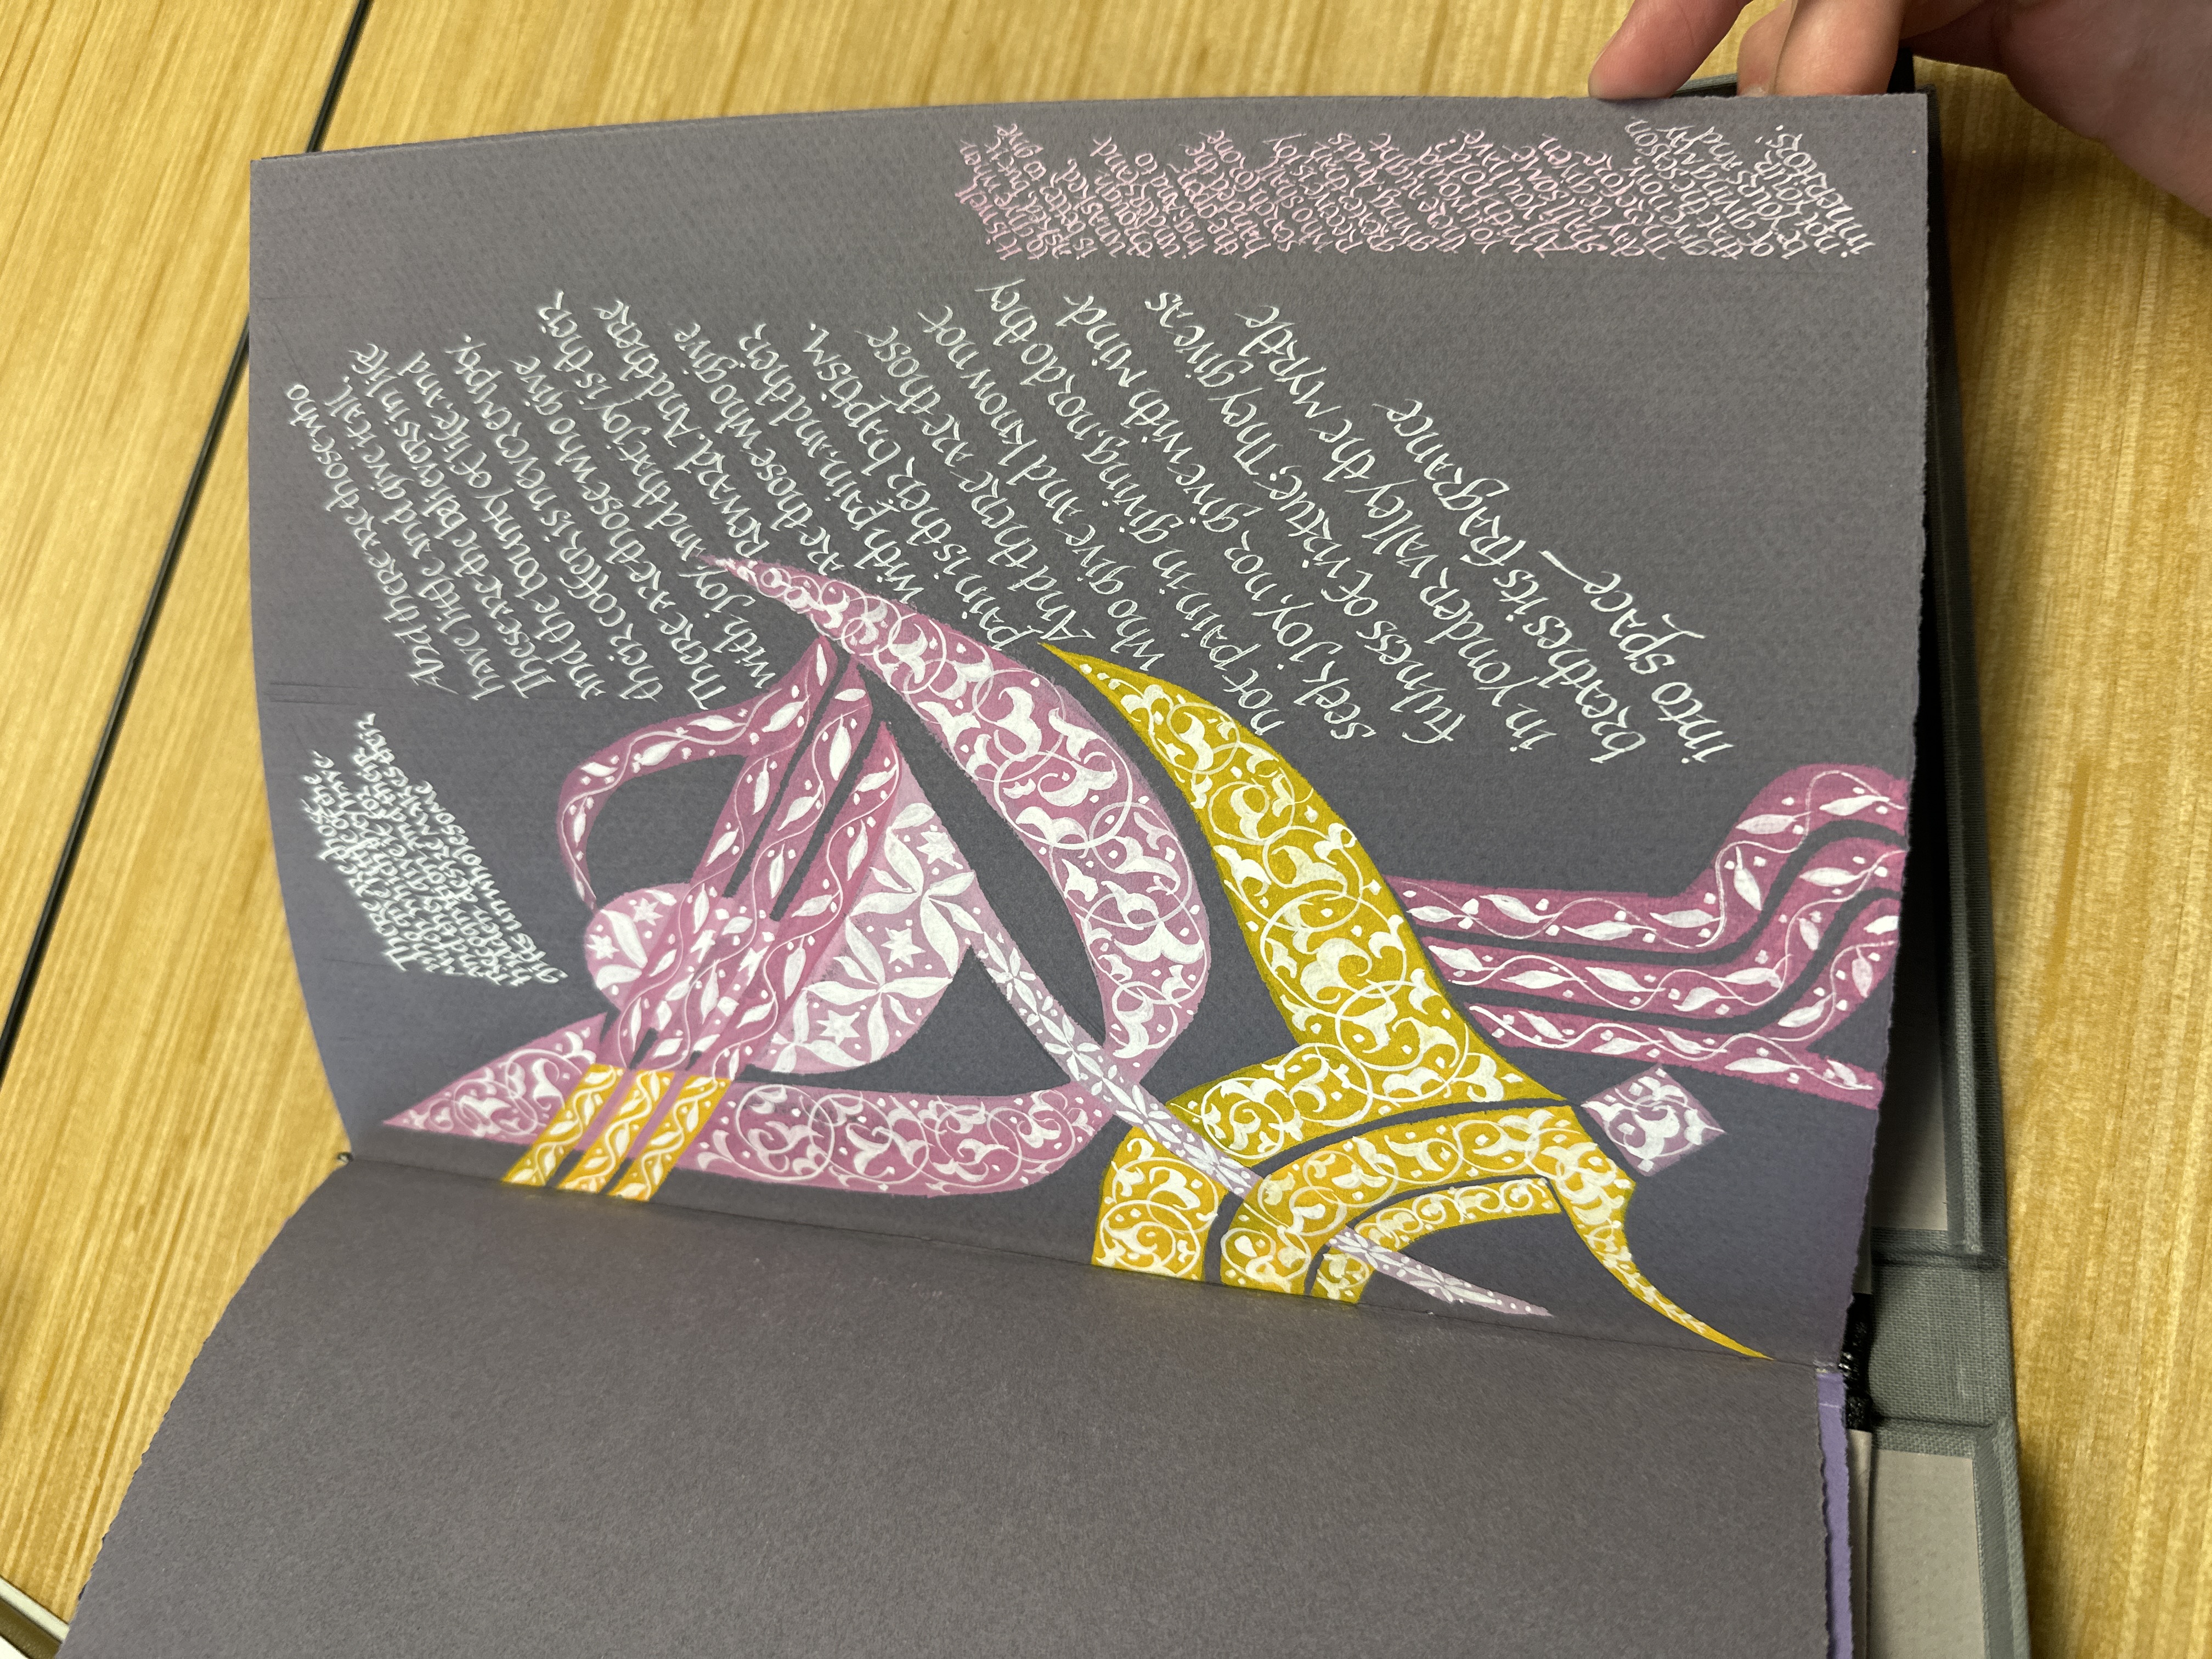 There are those
who give little of the
much which they have
and they give it for
recognition and their
hidden desire makes their
gifts unwholesome
And there are those who
have little and give it all.
These are the believers in life
and the bounty of life, and
their coffer is never empty.
There are those who give
with joy, and that joy is their
reward. And there
are those who give
with pain, and their
pain is their baptism.
And there are those
who give and know not
not pain in giving, nor do they
seek joy, nor give with mind-
fulness of virtue; They give as
in yonder valley the myrtle
breathes its fragrance
into space
It is well
to give when
asked, but it
is better to give
unasked,
through
understand
ing. And to
the open
handed the
search for one
who shall
receive is joy
greater than
giving. And is
there aught
you would
withhold?
All you have
shall some
day be given
Therefore
give now
that the season
of giving may
be yours and
not your
inheritors.